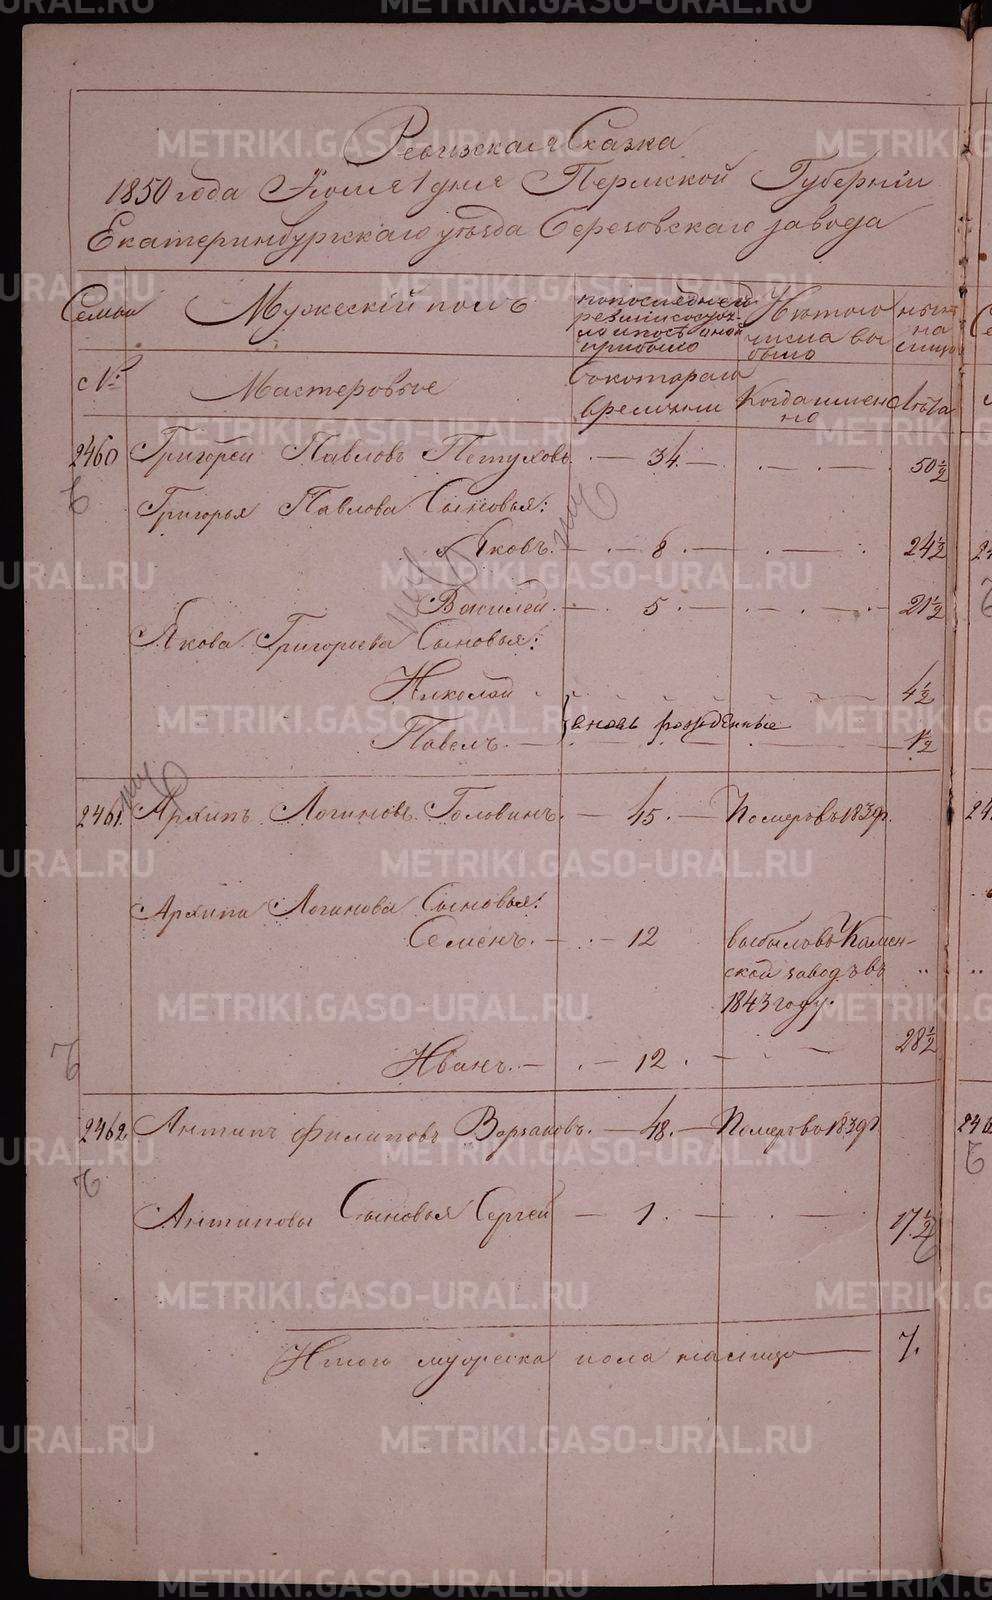 METRIKI.GASO-URAL.RU
Ревизская Сказка
1850 года Июля 1 дня Пермской Губернiи
Екатеринбургскаго уѣзда Березовскаго завода
Семьи
Мужескiй полъ
по последней ревизiи состояло и после оной прибыло
Из того числа выбыло
ныне на лицо
с №
Мастеровые
В котораго времении
Когда именно
Лѣта
2460 Григорей Павловъ Петуховъ 34 50½
Григорья Павлова Сыновья:
Яковъ 8 24½
Василей 5 21½
Якова Григорьева Сыновья:
Николай 4½
вновь рожденные
Павелъ ½
2461 Архипъ Логиновъ Головинъ 45 Померъ въ 1839 г.
Архипа Логинова Сыновья:
Семенъ 12 выбылъ въ Камен-
ской заводъ въ
1843 году.
Иванъ 12 28½
2462 Антипъ Филиповъ 48 Померъ въ 1839 г
Антиповы Сыновья Сергей 1 17½
Итого мужеска пола налицо 7.